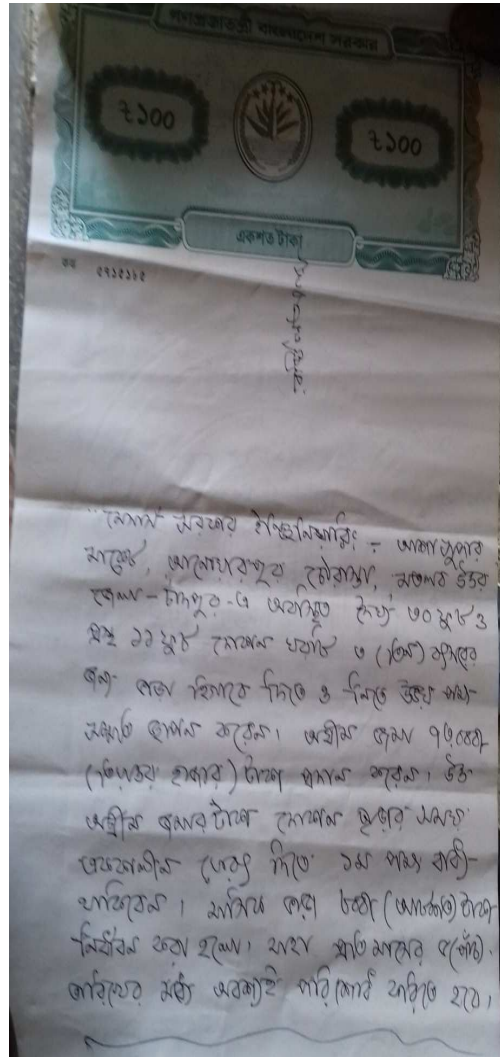 গণপ্রজাতন্ত্রী বাংলাদেশ সরকার
৳১০০ ৳১০০
একশত টাকা
কব ৫৭১৫১৮৫
"মেসার্স সরকার ইঞ্জিনিয়ারিং - আশা সুপার
মার্কেট, আনোয়ারপুর চৌরাস্তা, মতলব উত্তর
জেলা - চাঁদপুর-এ অবস্থিত দৈর্ঘ্য ৩০ ফুট ও
প্রস্থ ১১ ফুট দোকান ঘরটি ৩ (তিন) বৎসরের
জন্য ভাড়া হিসাবে দিতে ও নিতে উভয় পক্ষ
সম্মতি জ্ঞাপন করেন। অগ্রীম জমা ৭৩০০০
(তিয়াত্তর হাজার) টাকা প্রদান করেন। উক্ত
অগ্রীম জমার টাকা দোকান ছাড়ার সময়
এককালীন ফেরৎ দিতে ১ম পক্ষ বাধ্য
থাকিবেন। মাসিক ভাড়া ৮০০ (আটশত) টাকা
নির্ধারন করা হলো। যাহা প্রতি মাসের ৫ (পাঁচ)
তারিখের মধ্যে অবশ্যই পরিশোধ করিতে হবে।